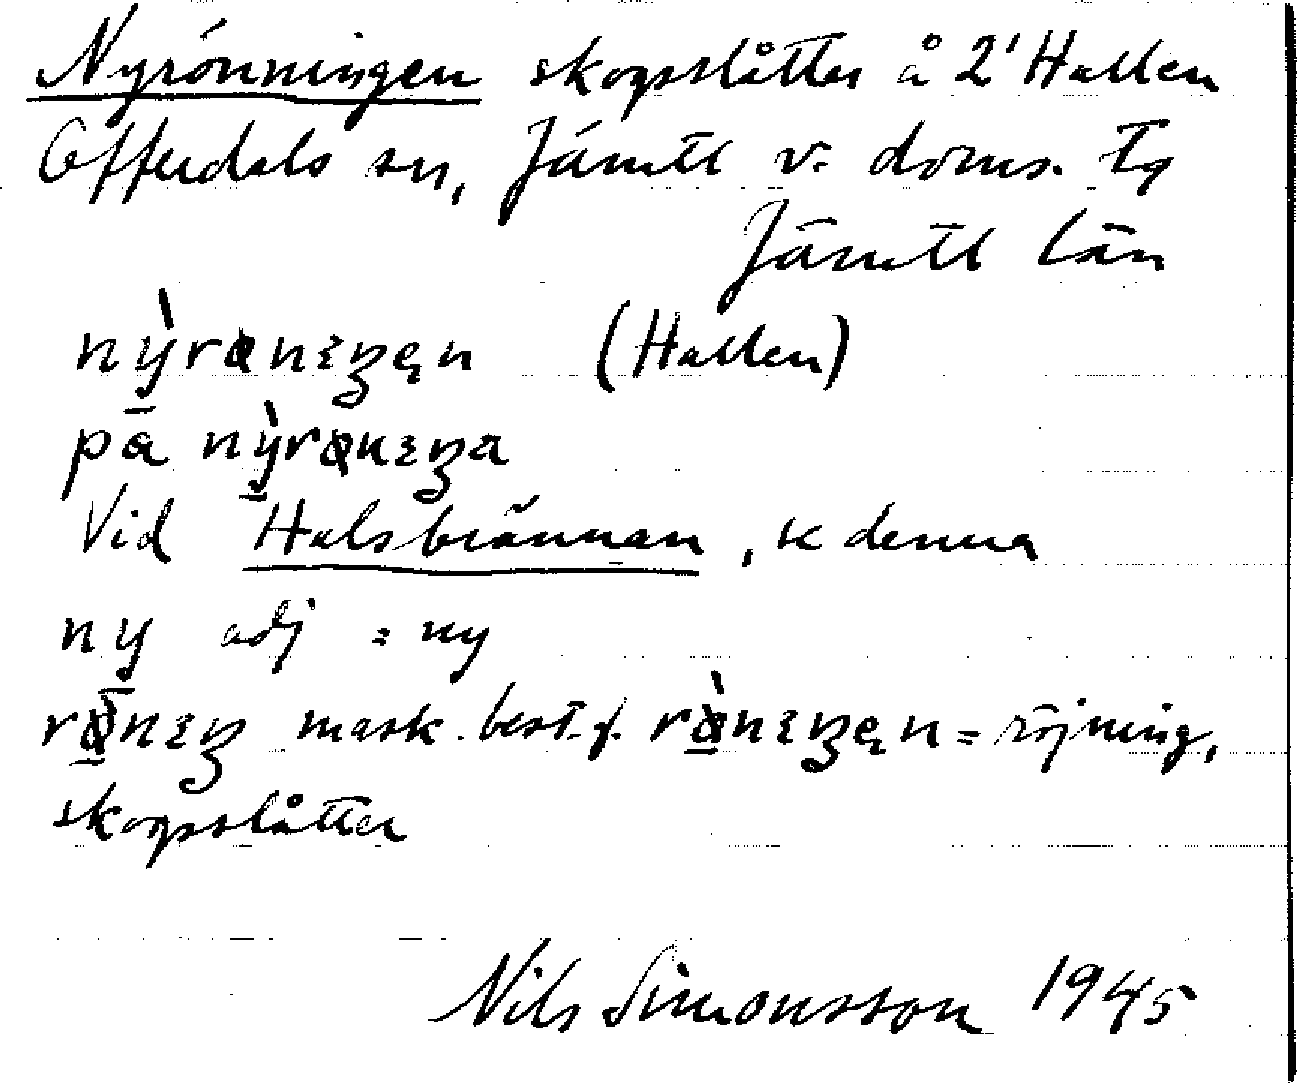 Nyrönningen skogsslåtter å 2' Hallen
Offerdals sn, Jämtl v. doms. Tg
Jämtl län
nỳ̱rɵnɛŋęn (Hallen)
på nỳ̱rɵnɛŋa
Vid Halsbrännan, se denna
ny̱ adj = ny
rɵ̱nɛŋ mask. best. f. rɵ̱̀nɛŋęn = röjning,
skogsslåtter
Nils Simonsson 1945